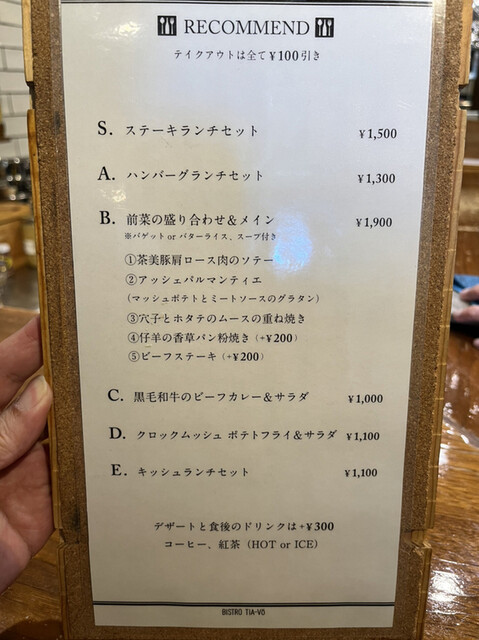 RECOMMEND
テイクアウトは全て¥100引き
S. ステーキランチセット ¥1,500
A. ハンバーグランチセット ¥1,300
B. 前菜の盛り合わせ＆メイン ¥1,900
※バゲット or バターライス、スープ付き
①茶美豚肩ロース肉のソテー
②アッシェパルマンティエ
(マッシュポテトとミートソースのグラタン)
③穴子とホタテのムースの重ね焼き
④仔羊の香草パン粉焼き (+¥200)
⑤ビーフステーキ (+¥200)
C. 黒毛和牛のビーフカレー＆サラダ ¥1,000
D. クロックムッシュ ポテトフライ＆サラダ ¥1,100
E. キッシュランチセット ¥1,100
デザートと食後のドリンクは+¥300
コーヒー、紅茶 (HOT or ICE)
BISTRO TIA-VO